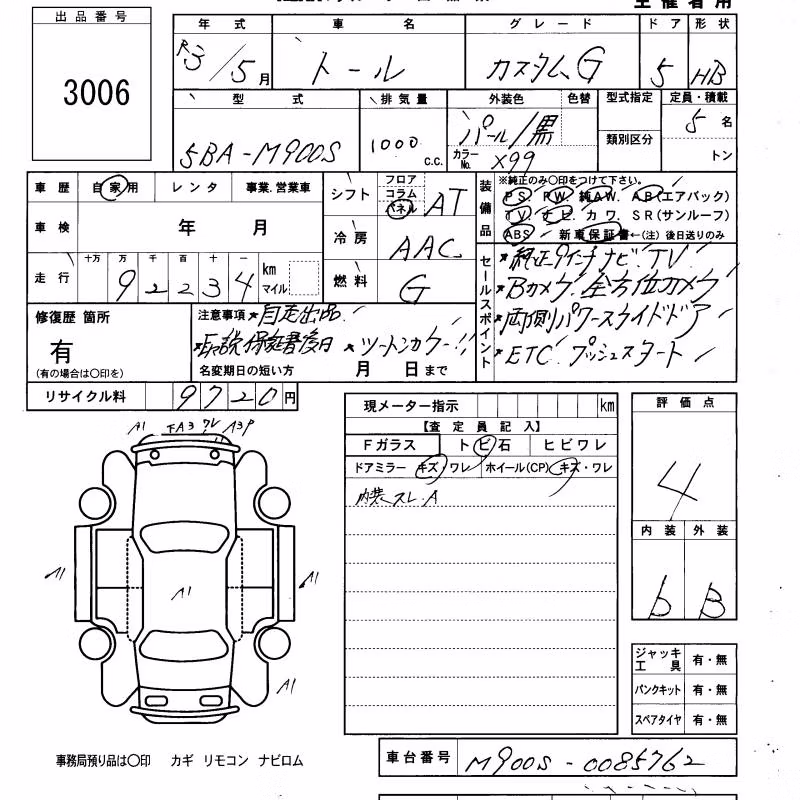 主催者用
出品番号
3006
年式 車名 グレード ドア 形状
R3/5月 トール カスタムG 5 HB
型式 排気量 外装色 色替 型式指定 定員・積載
5BA-M900S 1000 c.c. パール/黒 5名
カラーNo. X99 類別区分 トン
車歴 自家用 レンタ 事業.営業車
シフト フロア コラム パネル AT
装備品 ※純正のみ〇印をつけて下さい。
PS. PW. 純AW. AB(エアバック)
TV. ナビ. カワ. SR(サンルーフ)
ABS 新車保証書←(注)後日送りのみ
車検 年 月
冷房 AAC
走行 十万 万 千 百 十 一
92234 km マイル
燃料 G
セールスポイント
*純正9インチナビ.TV
*Bカメラ.全方位カメラ
*両側パワースライドドア
*ETC.プッシュスタート
修復歴 箇所
有
(有の場合は〇印を)
注意事項 *自走出品
*取説保証書後日 *ツートンカラー!!
名変期日の短い方 月 日まで
リサイクル料 9720円
現メーター指示 km
【査定員記入】
Fガラス トビ石 ヒビワレ
ドアミラー キズ・ワレ ホイール(CP) キズ・ワレ
内装スレ.A
評価点
4
内装 外装
b B
A1 下A3 ワレ A3P
A1 A1 A1
A1
ジャッキ工具 有・無
パンクキット 有・無
スペアタイヤ 有・無
事務局預り品は〇印 カギ リモコン ナビロム
車台番号 M900S-0085762